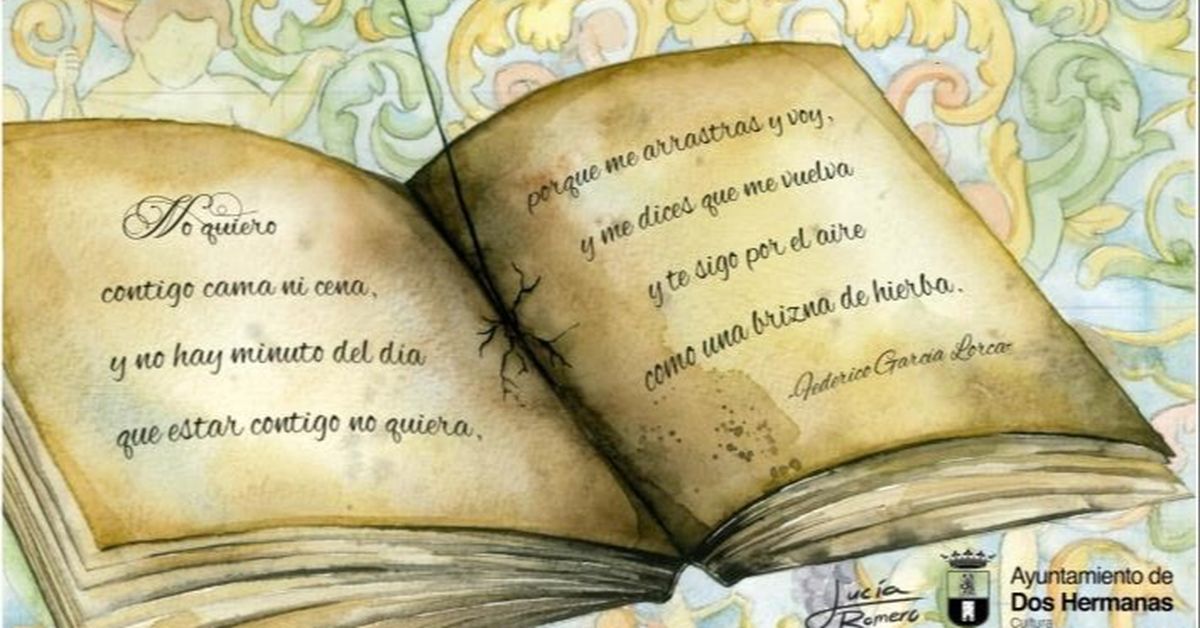 No quiero
contigo cama ni cena,
y no hay minuto del día
que estar contigo no quiera,
porque me arrastras y voy,
y me dices que me vuelva
y te sigo por el aire
como una brizna de hierba.
-Federico García Lorca-
Lucía
Romero
Ayuntamiento de
Dos Hermanas
Cultura